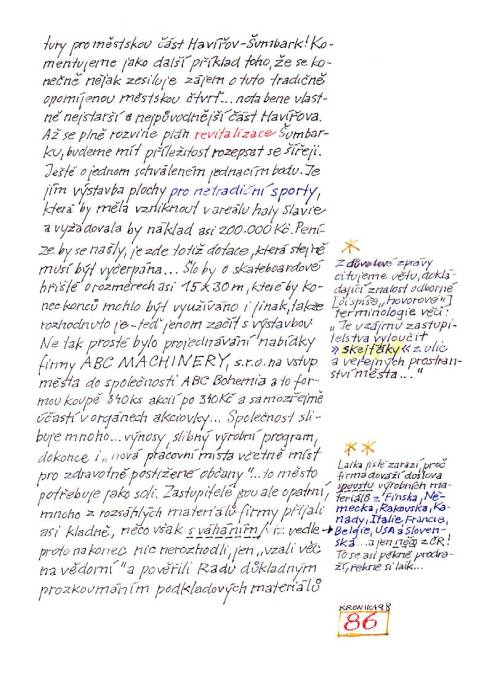 tury pro městskou část Havířov-Šumbark! Ko-
mentujeme jako další příklad toho, že se ko-
nečně nějak zesiluje zájem o tuto tradičně
opomíjenou městskou čtvrť... nota bene vlast-
ně nejstarší a nejpůvodnější část Havířova.
Až se plně rozvine plán revitalizace Šumbar-
ku, budeme mít příležitost rozepsat se šířeji.
Ještě o jednom schváleném jednacím bodu. Je
jím výstavba plochy pro netradiční sporty,
která by měla vzniknout v areálu haly Slavie
a vyžádovala by náklad asi 200.000 Kč. Pení-
ze by se našly, je zde totiž dotace, která stejně
musí být vyčerpána... Šlo by o skateboardové
hřiště o rozměrech asi 15 x 30 m, které by ko-
nec konců mohlo být využíváno i jinak, takže
rozhodnuto je - teď jenom začít s výstavbou
Ne tak prosté bylo projednávání nabídky
firmy ABC MACHINERY, s.r.o. na vstup
města do společnosti ABC Bohemia a to for-
mou koupě 840 ks akcií po 310 Kč a samozřejmě
účastí v orgánech akciovky... Společnost sli-
buje mnoho... výnosy, slibný výrobní program,
dokonce i „nová pracovní místa včetně míst
pro zdravotně postižené občany"... to město
potřebuje jako soli. Zastupitelé jsou ale opatrní,
mnoho z rozsáhlých materiálů firmy přijali
asi kladně, něco však s váháním / viz vedle
proto nakonec nic nerozhodli, jen „vzali věc
na vědomí" a pověřili Radu důkladným
prozkoumáním podkladových materiálů
*
Z důvodové zprávy
citujeme větu, doklá-
dající znalost odborné
[či spíše „hovorové"]
terminologie věci:
„Je v zájmu zastupi-
telstva vyloučit
»skejťáky« z ulic
a veřejných prostran-
ství města..."
**
Laika jistě zarazí, proč
firma dováží doslova
spoustu výrobních ma-
teriálů z Finska, Ně-
mecka, Rakouska, Ka-
nady, Itálie, Francie,
Belgie, USA a Sloven-
ska... a jen něco z ČR!
To se asi pěkně prodra-
ží, řekne si laik...
KRONIKA 98
86